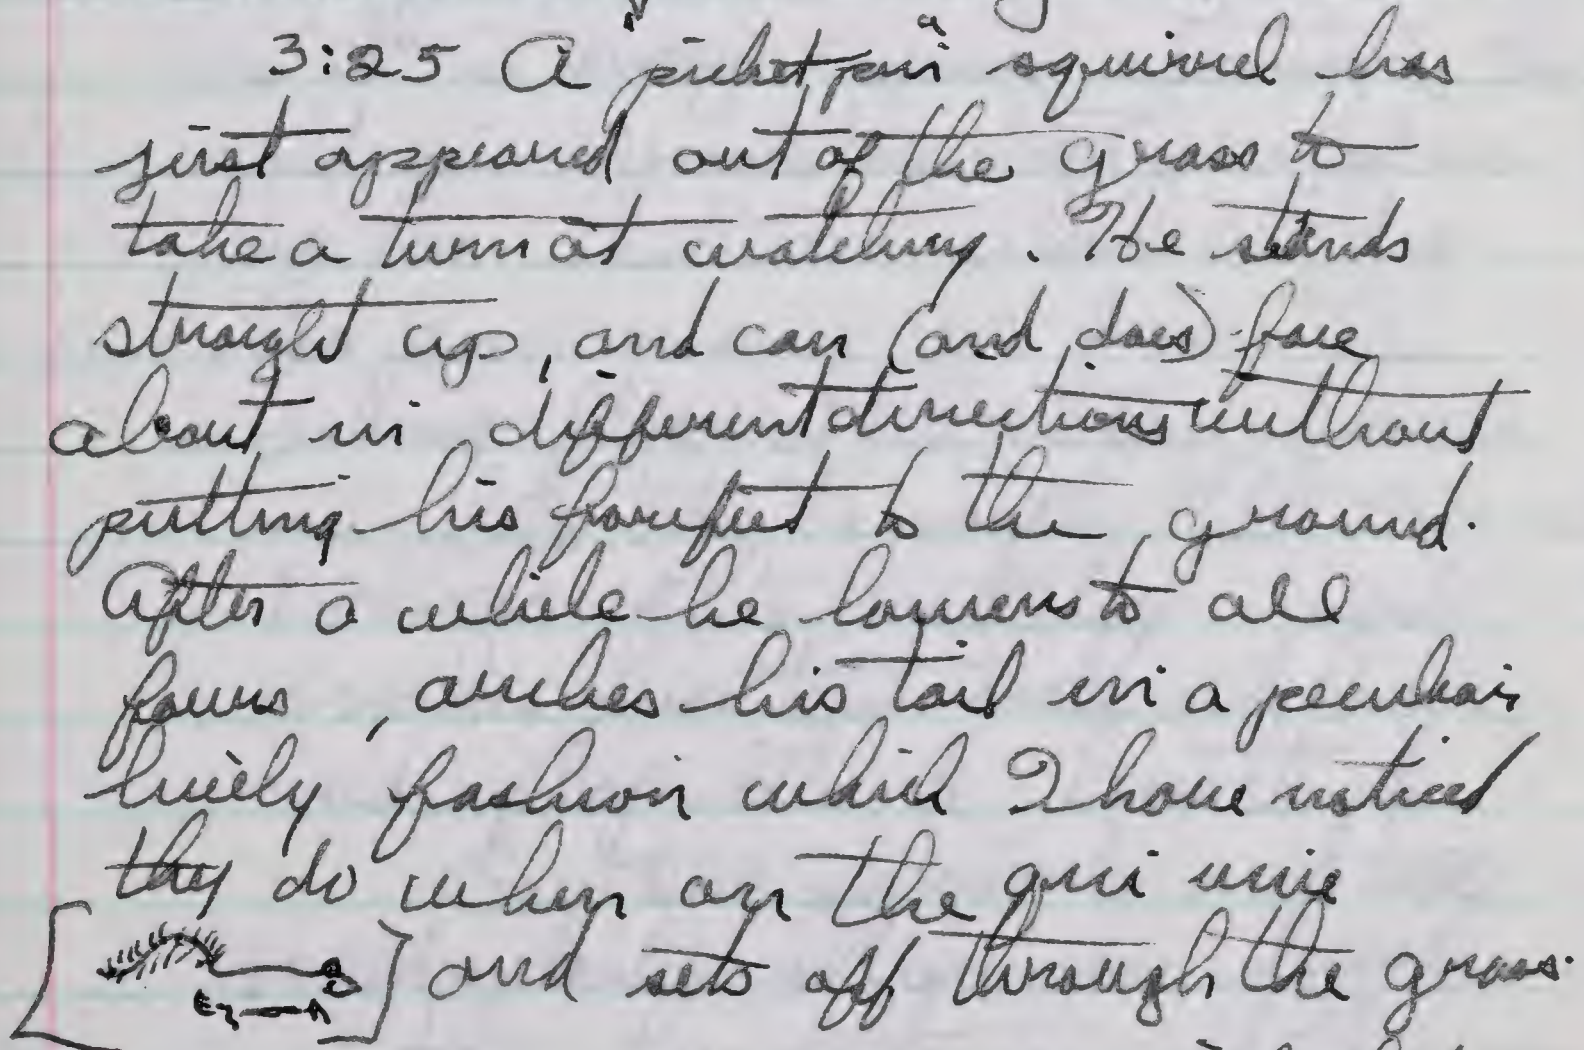 3:25 A "picket pin" squirrel has
just appeared out of the grass to
take a turn at watching. He stands
straight up, and can (and does) face
about in different directions without
putting his forefeet to the ground.
After a while he lowers to all
fours, arches his tail in a peculiar
lively fashion which I have noticed
they do when on the qui vive
[ ] and sets off through the grass.